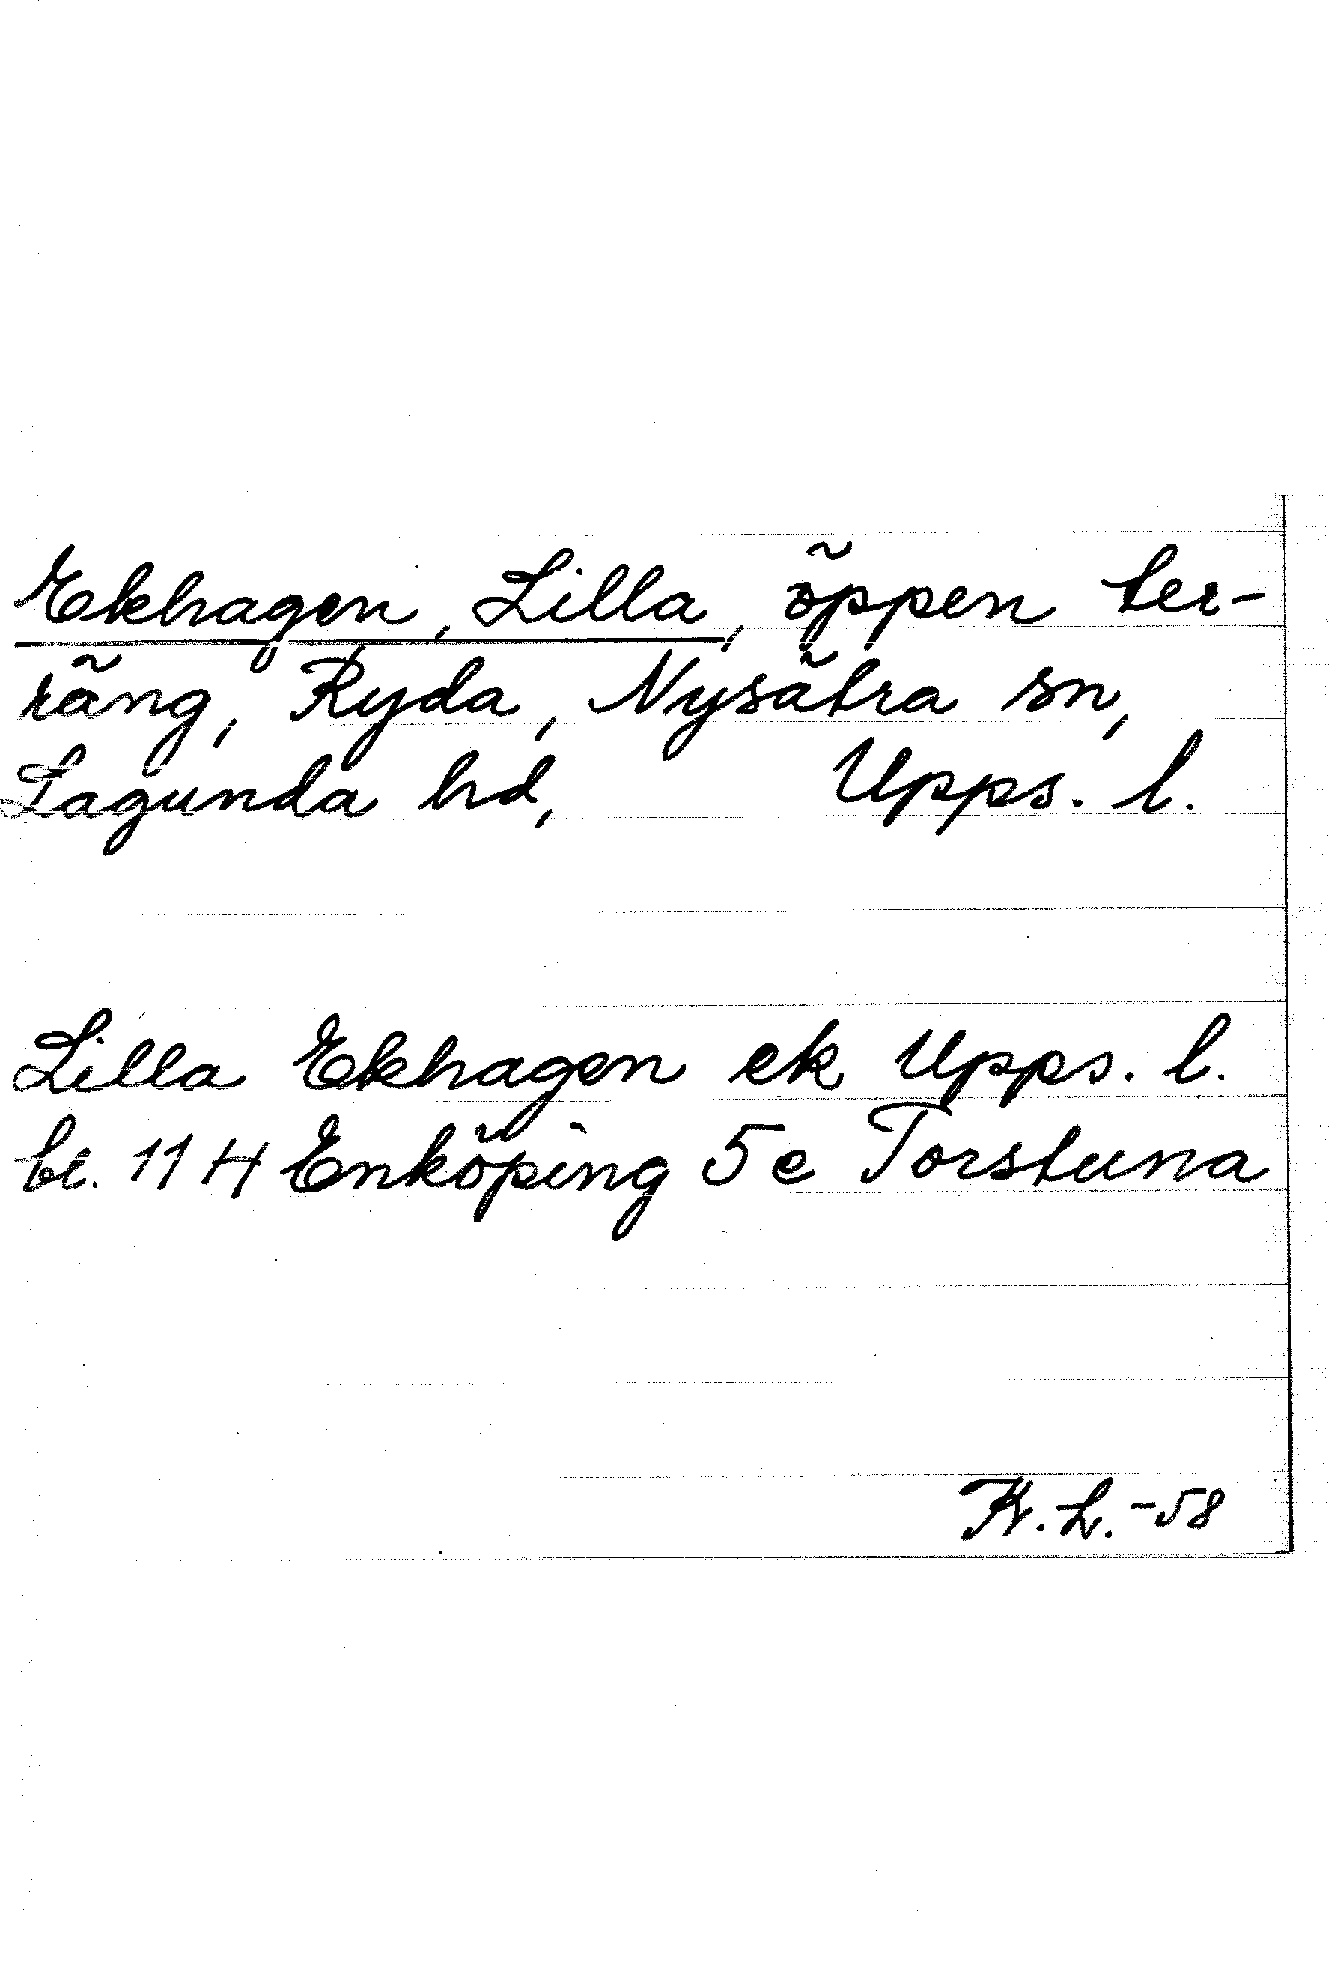 Ekhagen, Lilla, öppen ter-
räng, Ryda, Nysätra sn,
Lagunda hd, Upps. l.
Lilla Ekhagen ek Upps. l.
bl. 114 Enköping 5e Torstuna
Kr. L. -58